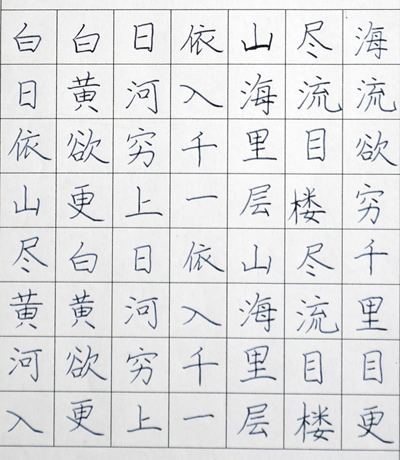 白白日依山尽海
日黄河入海流流
依欲穷千里目欲
山更上一层楼穷
尽白日依山尽千
黄黄河入海流里
河欲穷千里目目
入更上一层楼更